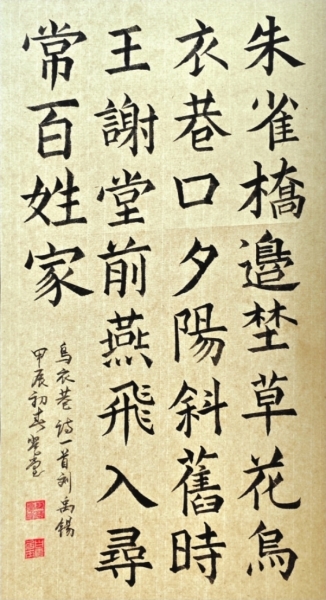 朱雀橋邊埜草花烏
衣巷口夕陽斜舊時
王謝堂前燕飛入尋
常百姓家
烏衣巷诗一首刘禹錫
甲辰初春